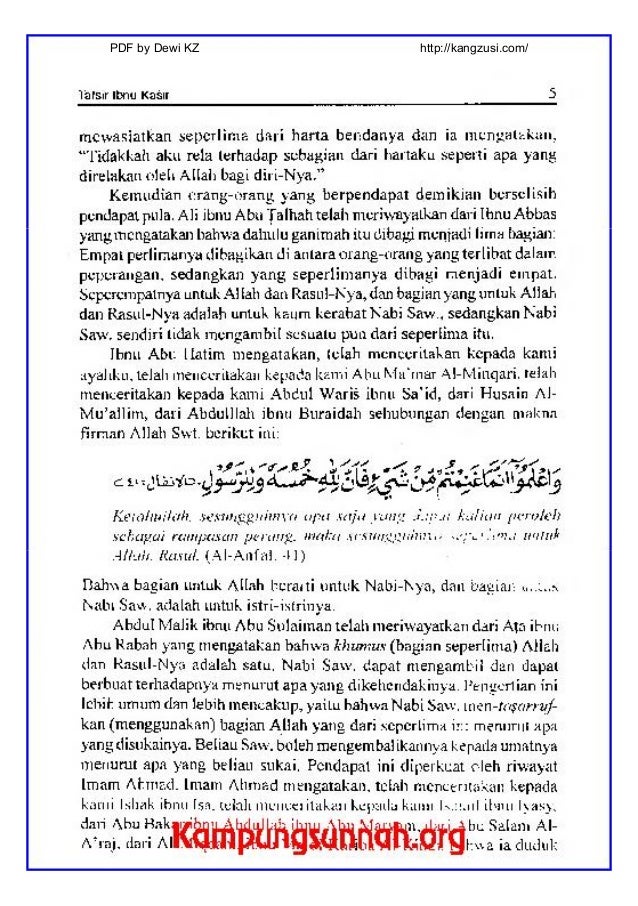 PDF by Dewi KZ http://kangzusi.com/
Tafsir Ibnu Kasir 5
mewasiatkan seperlima dari harta bendanya dan ia mengatakan,
“Tidakkah aku rela terhadap sebagian dari hartaku seperti apa yang
direlakan oleh Allah bagi diri-Nya.”
Kemudian orang-orang yang berpendapat demikian berselisih
pendapat pula. Ali ibnu Abu Talhah telah meriwayatkan dari Ibnu Abbas
yang mengatakan bahwa dahulu ganimah itu dibagi menjadi lima bagian:
Empat perlimanya dibagikan di antara orang-orang yang terlibat dalam
peperangan, sedangkan yang seperlimanya dibagi menjadi empat.
Seperempatnya untuk Allah dan Rasul-Nya, dan bagian yang untuk Allah
dan Rasul-Nya adalah untuk kaum kerabat Nabi Saw., sedangkan Nabi
Saw. sendiri tidak mengambil sesuatu pun dari seperlima itu.
Ibnu Abu Hatim mengatakan, telah menceritakan kepada kami
ayahku, telah menceritakan kepada kami Abu Ma'mar Al-Minqari, telah
menceritakan kepada kami Abdul Waris ibnu Sa'id, dari Husain Al-
Mu'allim, dari Abdulllah ibnu Buraidah sehubungan dengan makna
firman Allah Swt. berikut ini:
وَاعْلَمُوْٓا اَنَّمَا غَنِمْتُمْ مِّنْ شَيْءٍ فَاَنَّ لِلّٰهِ خُمُسَهٗ وَلِلرَّسُوْلِ. الانفال: ٤١
Ketahuilah, sesungguhnya apa saja yang dapat kalian peroleh
sebagai rampasan perang, maka sesungguhnya seperlima untuk
Allah, Rasul. (Al-Anfal: 41)
Bahwa bagian untuk Allah berarti untuk Nabi-Nya, dan bagian
Nabi Saw. adalah untuk istri-istrinya.
Abdul Malik ibnu Abu Sulaiman telah meriwayatkan dari Ata ibnu
Abu Rabah yang mengatakan bahwa khumus (bagian seperlima) Allah
dan Rasul-Nya adalah satu, Nabi Saw. dapat mengambil dan dapat
berbuat terhadapnya menurut apa yang dikehendakinya. Pengertian ini
lebih umum dan lebih mencakup, yaitu bahwa Nabi Saw. men-taşarruf-
kan (menggunakan) bagian Allah yang dari seperlima ini menurut apa
yang disukainya. Beliau Saw. boleh mengembalikannya kepada umatnya
menurut apa yang beliau sukai. Pendapat ini diperkuat oleh riwayat
Imam Ahmad. Imam Ahmad mengatakan, telah menceritakan kepada
kami Ishak ibnu Isa, telah menceritakan kepada kami Ismail ibnu Iyasy,
dari Abu Bakar ibnu Abdullah ibnu Abu Maryam, dari Abu Salam Al-
A'raj, dari bahwa ia duduk
Kampungsunnah.org